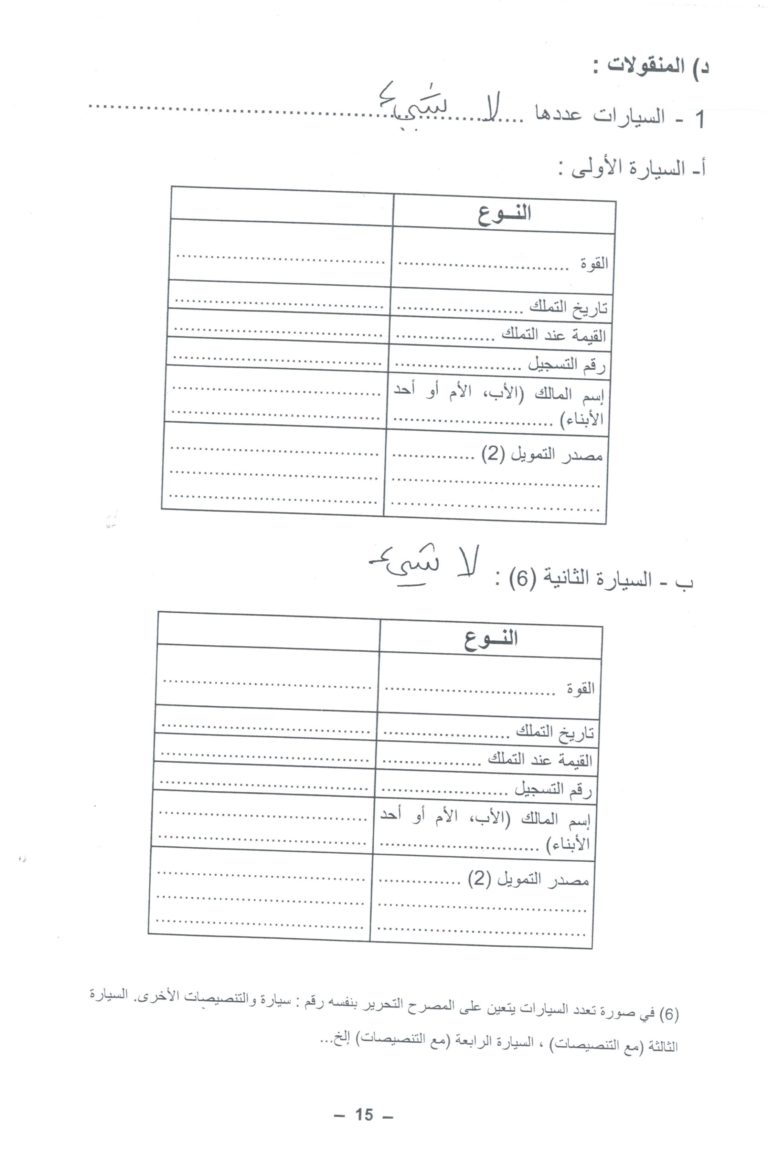 د) المنقولات :
1 - السيارات عددها .... لا شيء ................
أ- السيارة الأولى :
النــوع
القوة ............................ ..................................
تاريخ التملك ...................... ..................................
القيمة عند التملك ................. ..................................
رقم التسجيل ...................... ..................................
إسم المالك (الأب، الأم أو أحد ..................................
الأبناء) ........................... ..................................
مصدر التمويل (2) .............. ..................................
.................................. ..................................
.................................. ..................................
ب - السيارة الثانية (6) : لا شيء
النــوع
القوة ............................ ..................................
تاريخ التملك ...................... ..................................
القيمة عند التملك ................. ..................................
رقم التسجيل ...................... ..................................
إسم المالك (الأب، الأم أو أحد ..................................
الأبناء) ........................... ..................................
مصدر التمويل (2) .............. ..................................
.................................. ..................................
.................................. ..................................
(6) في صورة تعدد السيارات يتعين على المصرح التحرير بنفسه رقم : سيارة والتنصيصات الأخرى. السيارة
الثالثة (مع التنصيصات) ، السيارة الرابعة (مع التنصيصات) إلخ...
– 15 –